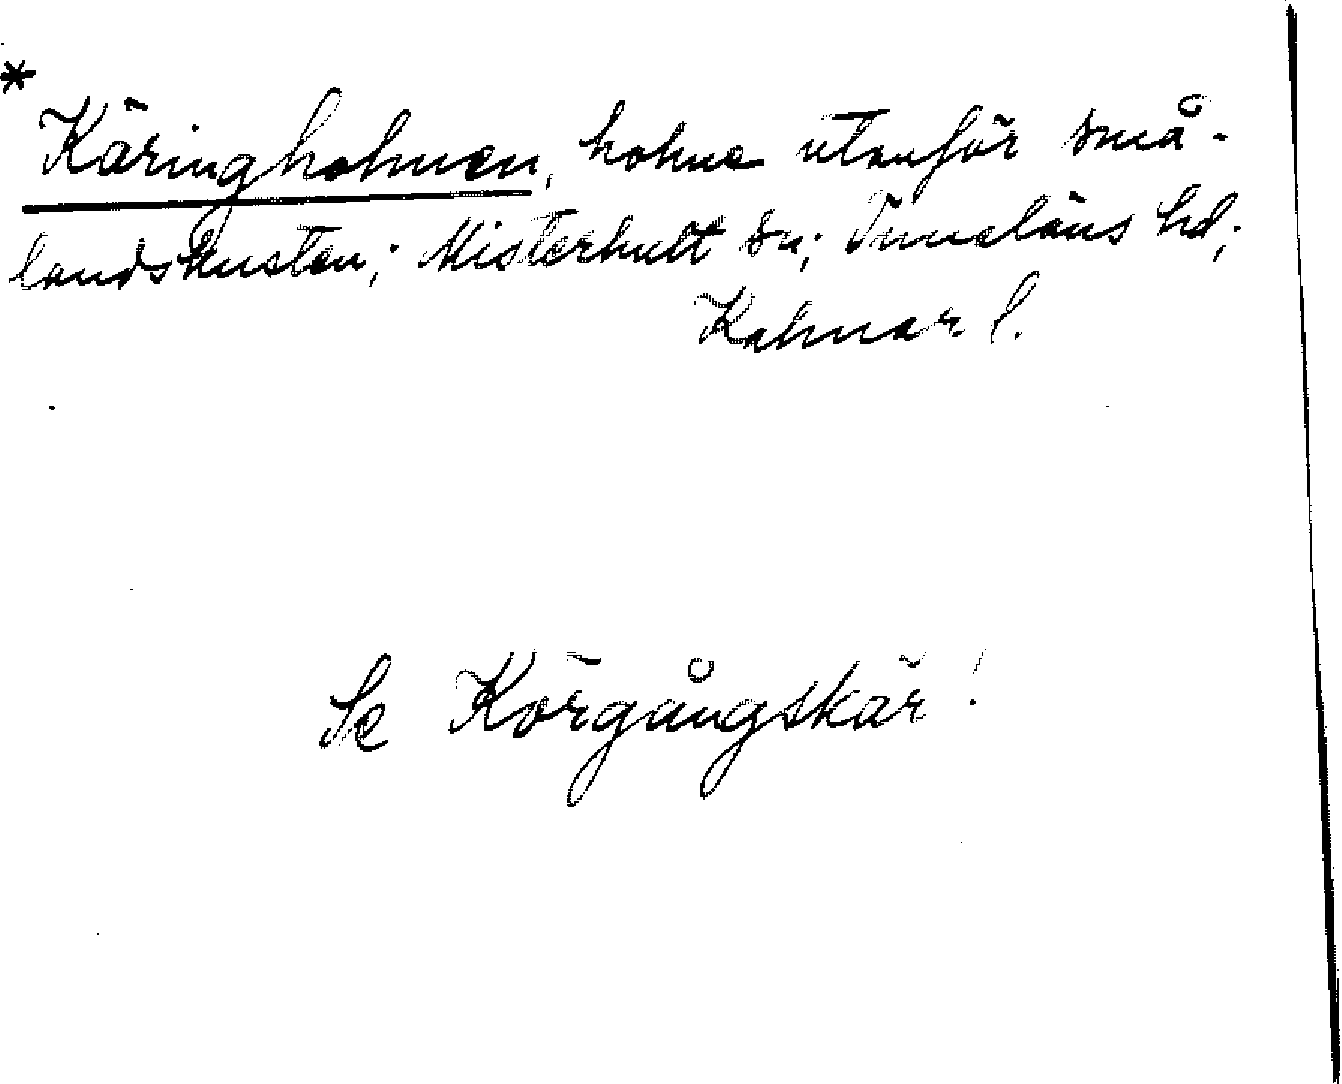 * Käringholmen, holme utanför små-
landskusten; Misterhult sn; Tunaläns hd;
Kalmar l.
Se Körgångskär!